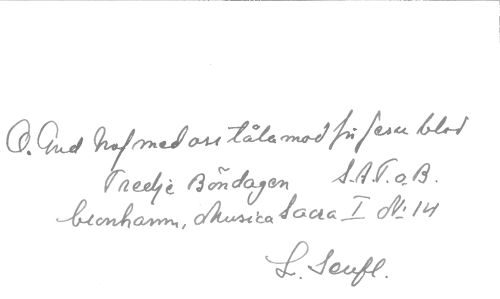 O. Gud haf med oss tålamod för Jesu blod
Tredje Böndagen S.A.T. o. B.
Cronhamn, Musica Sacra I № 14
L. Senfl.